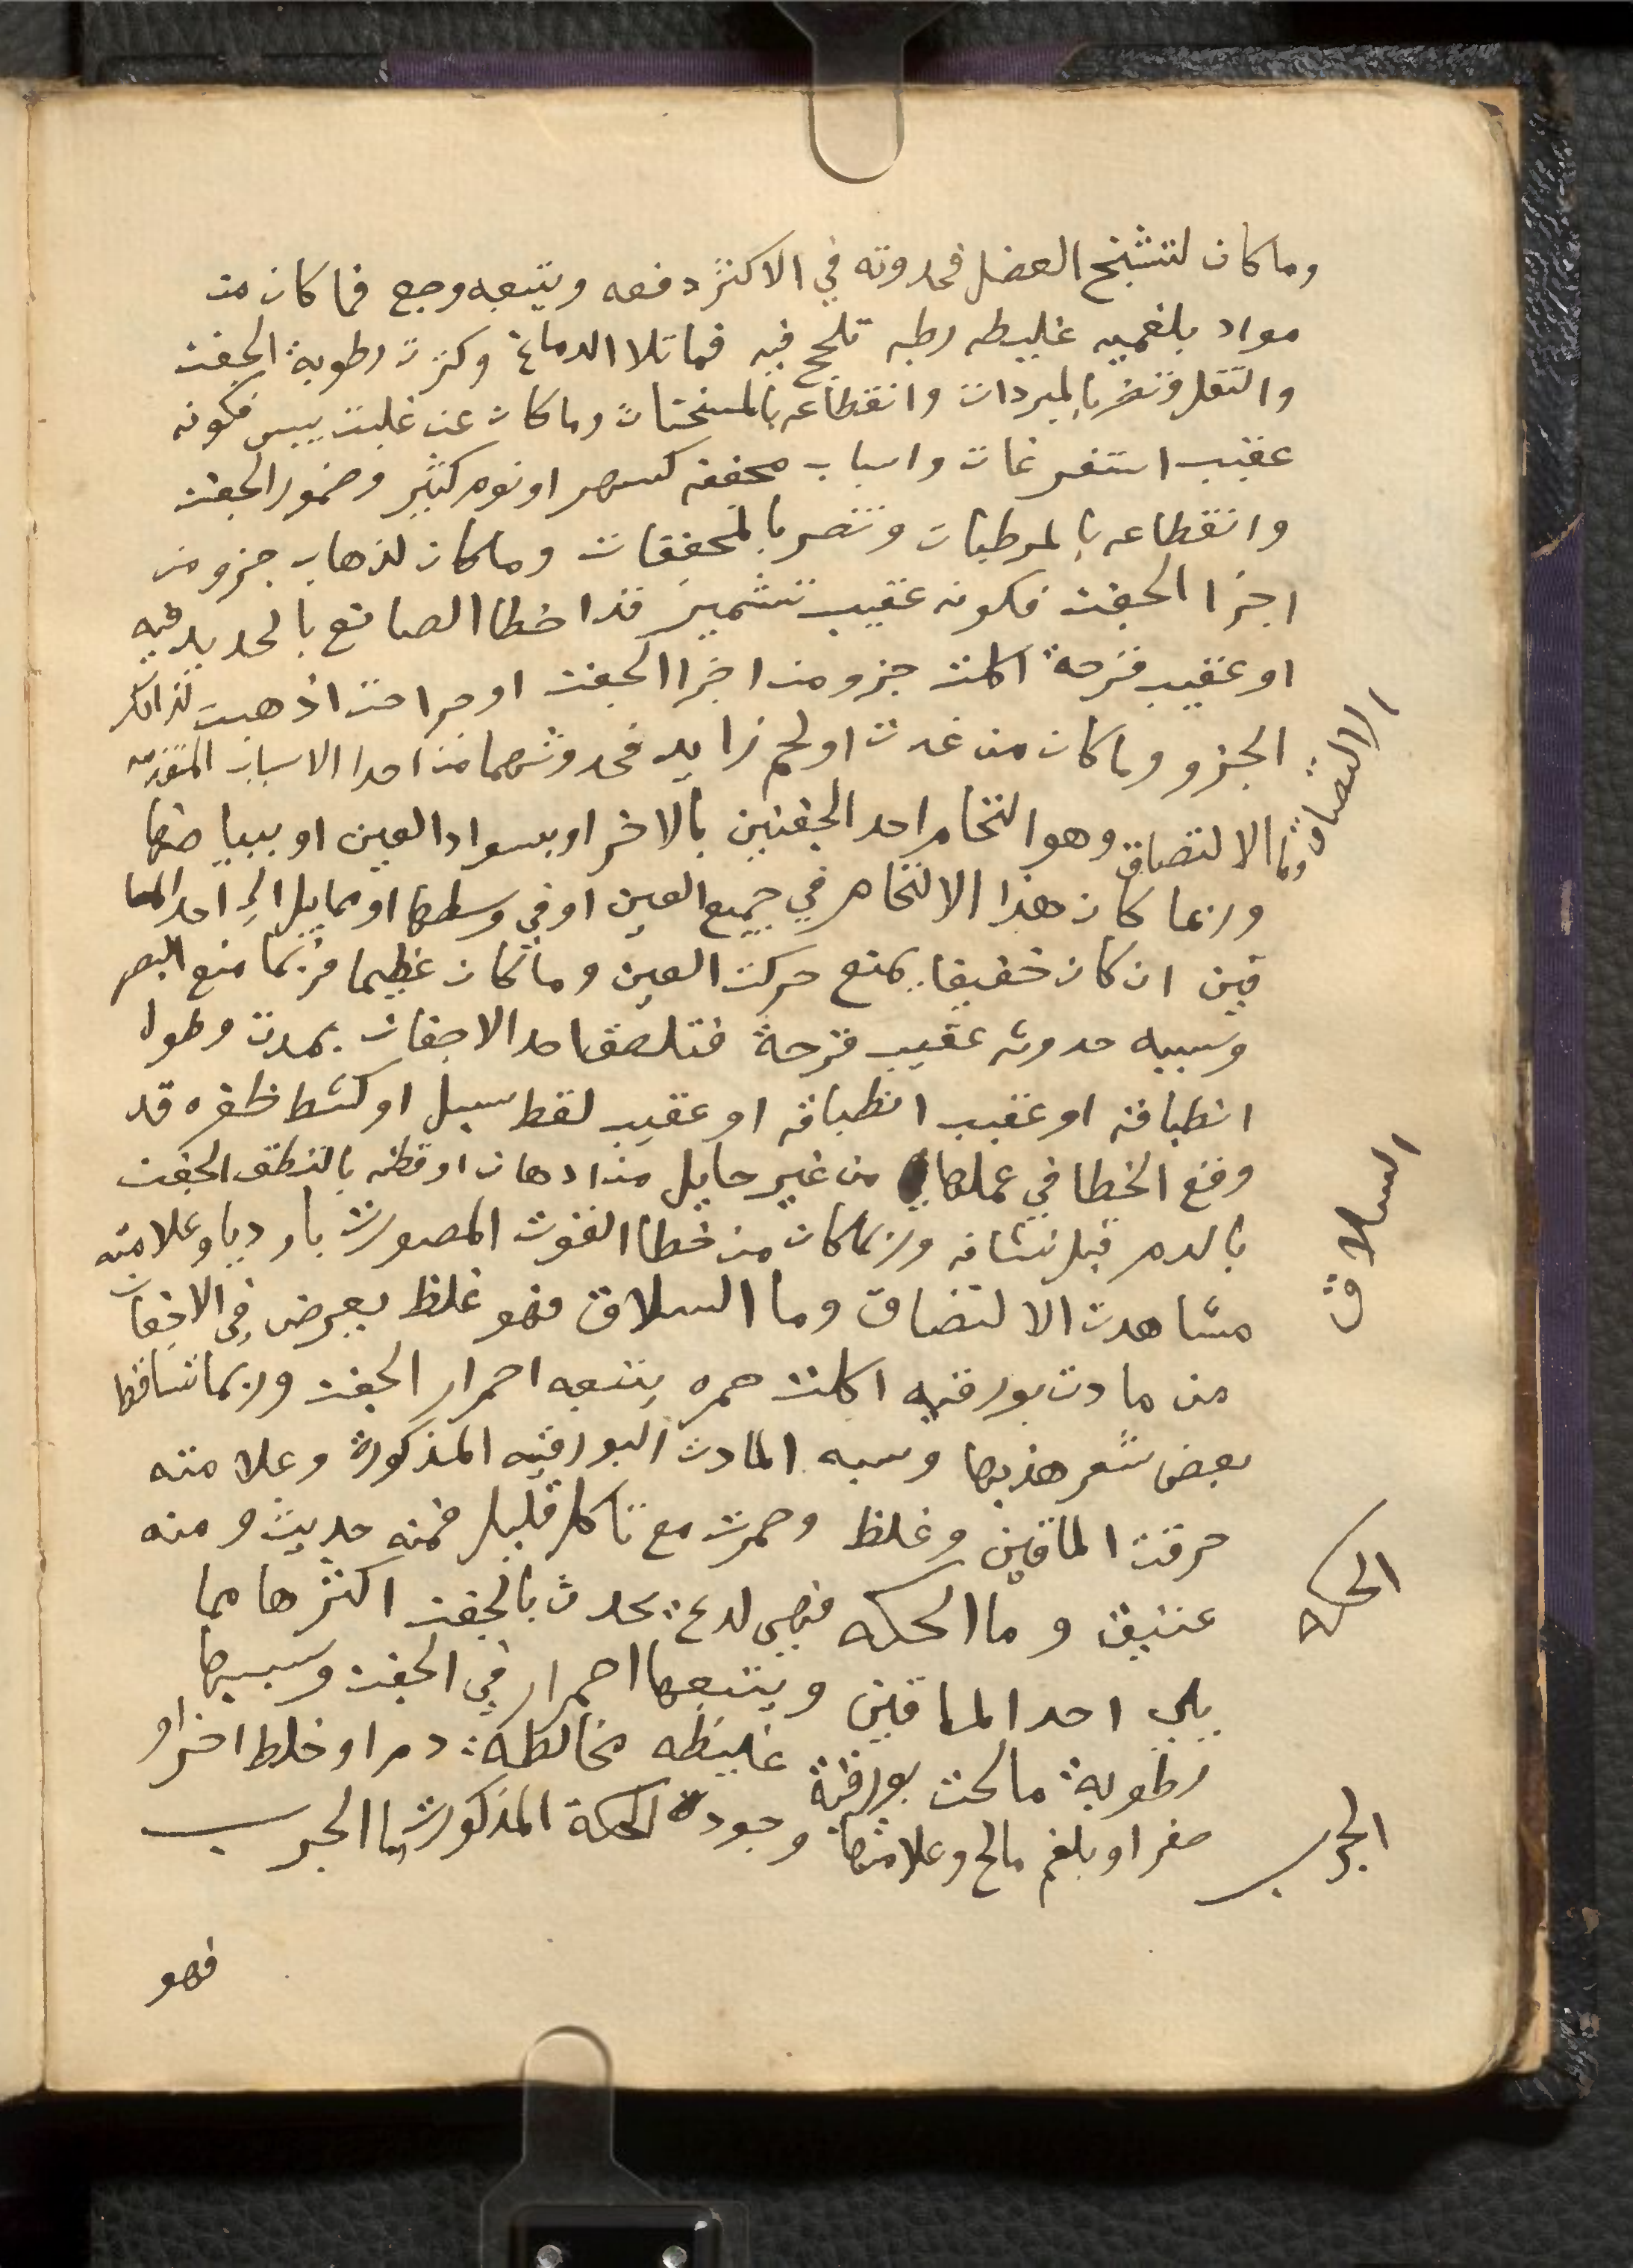 وما كان لتشنج العضل فحدوثه في الاكثر دفعه ويتبعه وجع فما كان من
مواد بلغميه غليظه رطبه تلحج فيه فماتلا الدماغ وكثرت رطوبة الجفن
والثقل وتضر بالمبردات وانقطاعه بالمسخنات وما كان عن غلبت يبس فكونه
عقيب استفرغات واسباب مجففه كسهر او نوم كثير وضمور الجفن
وانقطاعه بالمرطبات وتضر بالمجففات وما كان لذهاب جزو من
اجزا الجفن فكونه عقيب تشمير قد اخطا الصانع بالحديد فيه
او عقيب قرحة اكلت جزو من اجزا الجفن او جراحت اذهبت لذالك
الجزو وما كان من غدت او لحم زايد فحدوثهما من احدا الاسباب المتقدمه
وما الالتصاق وهو التحام احد الجفنين بالاخر او بسواد العين او ببياضها
وربما كان هذا الالتحام في جميع العين او في وسطها او مما يلي الى احد الما
قين ان كان خفيفا يمنع حركت العين وما كان عظيما فربما منع البصر
وسببه حدوثه عقيب قرحة فتلصق احد الاجفان بمدت وطول
انطباقه او عقيب انطباقه او عقيب لقط سبل او كشط ظفره قد
وقع الخطا في عملها من غير حايل من ادهان او قطنه بالتطف الجفن
بالدم قبل نشافه وربما كان من خطا القوت المصورت باو ديا وعلامته
مشاهدت الالتصاق وما السلاق فهو غلظ يعرض في الاجفان
من مادت بورقيه اكلت حمره يتبعه احمرار الجفن وربما تساقط
بعض شعر هذبها وسببه المادت البورقيه المذكورة وعلامته
حرقت الماقين وغلظ وحمرت مع تاكل قليل فمنه حديث ومنه
عتيق وما الحكه فهي لدع يحدث بالجفن اكثرها مما
يلي احد الماقين ويتبعها احمرار في الجفن وسببها
رطوبة مالحت بورقية غليظه مخالطة دم او خلط اخر او
صفر او بلغم مالح وعلامتها وجودة الحكة المذكورت وما الجرب
فهو
الالتصاق
السلاق
الحكه
الجرب